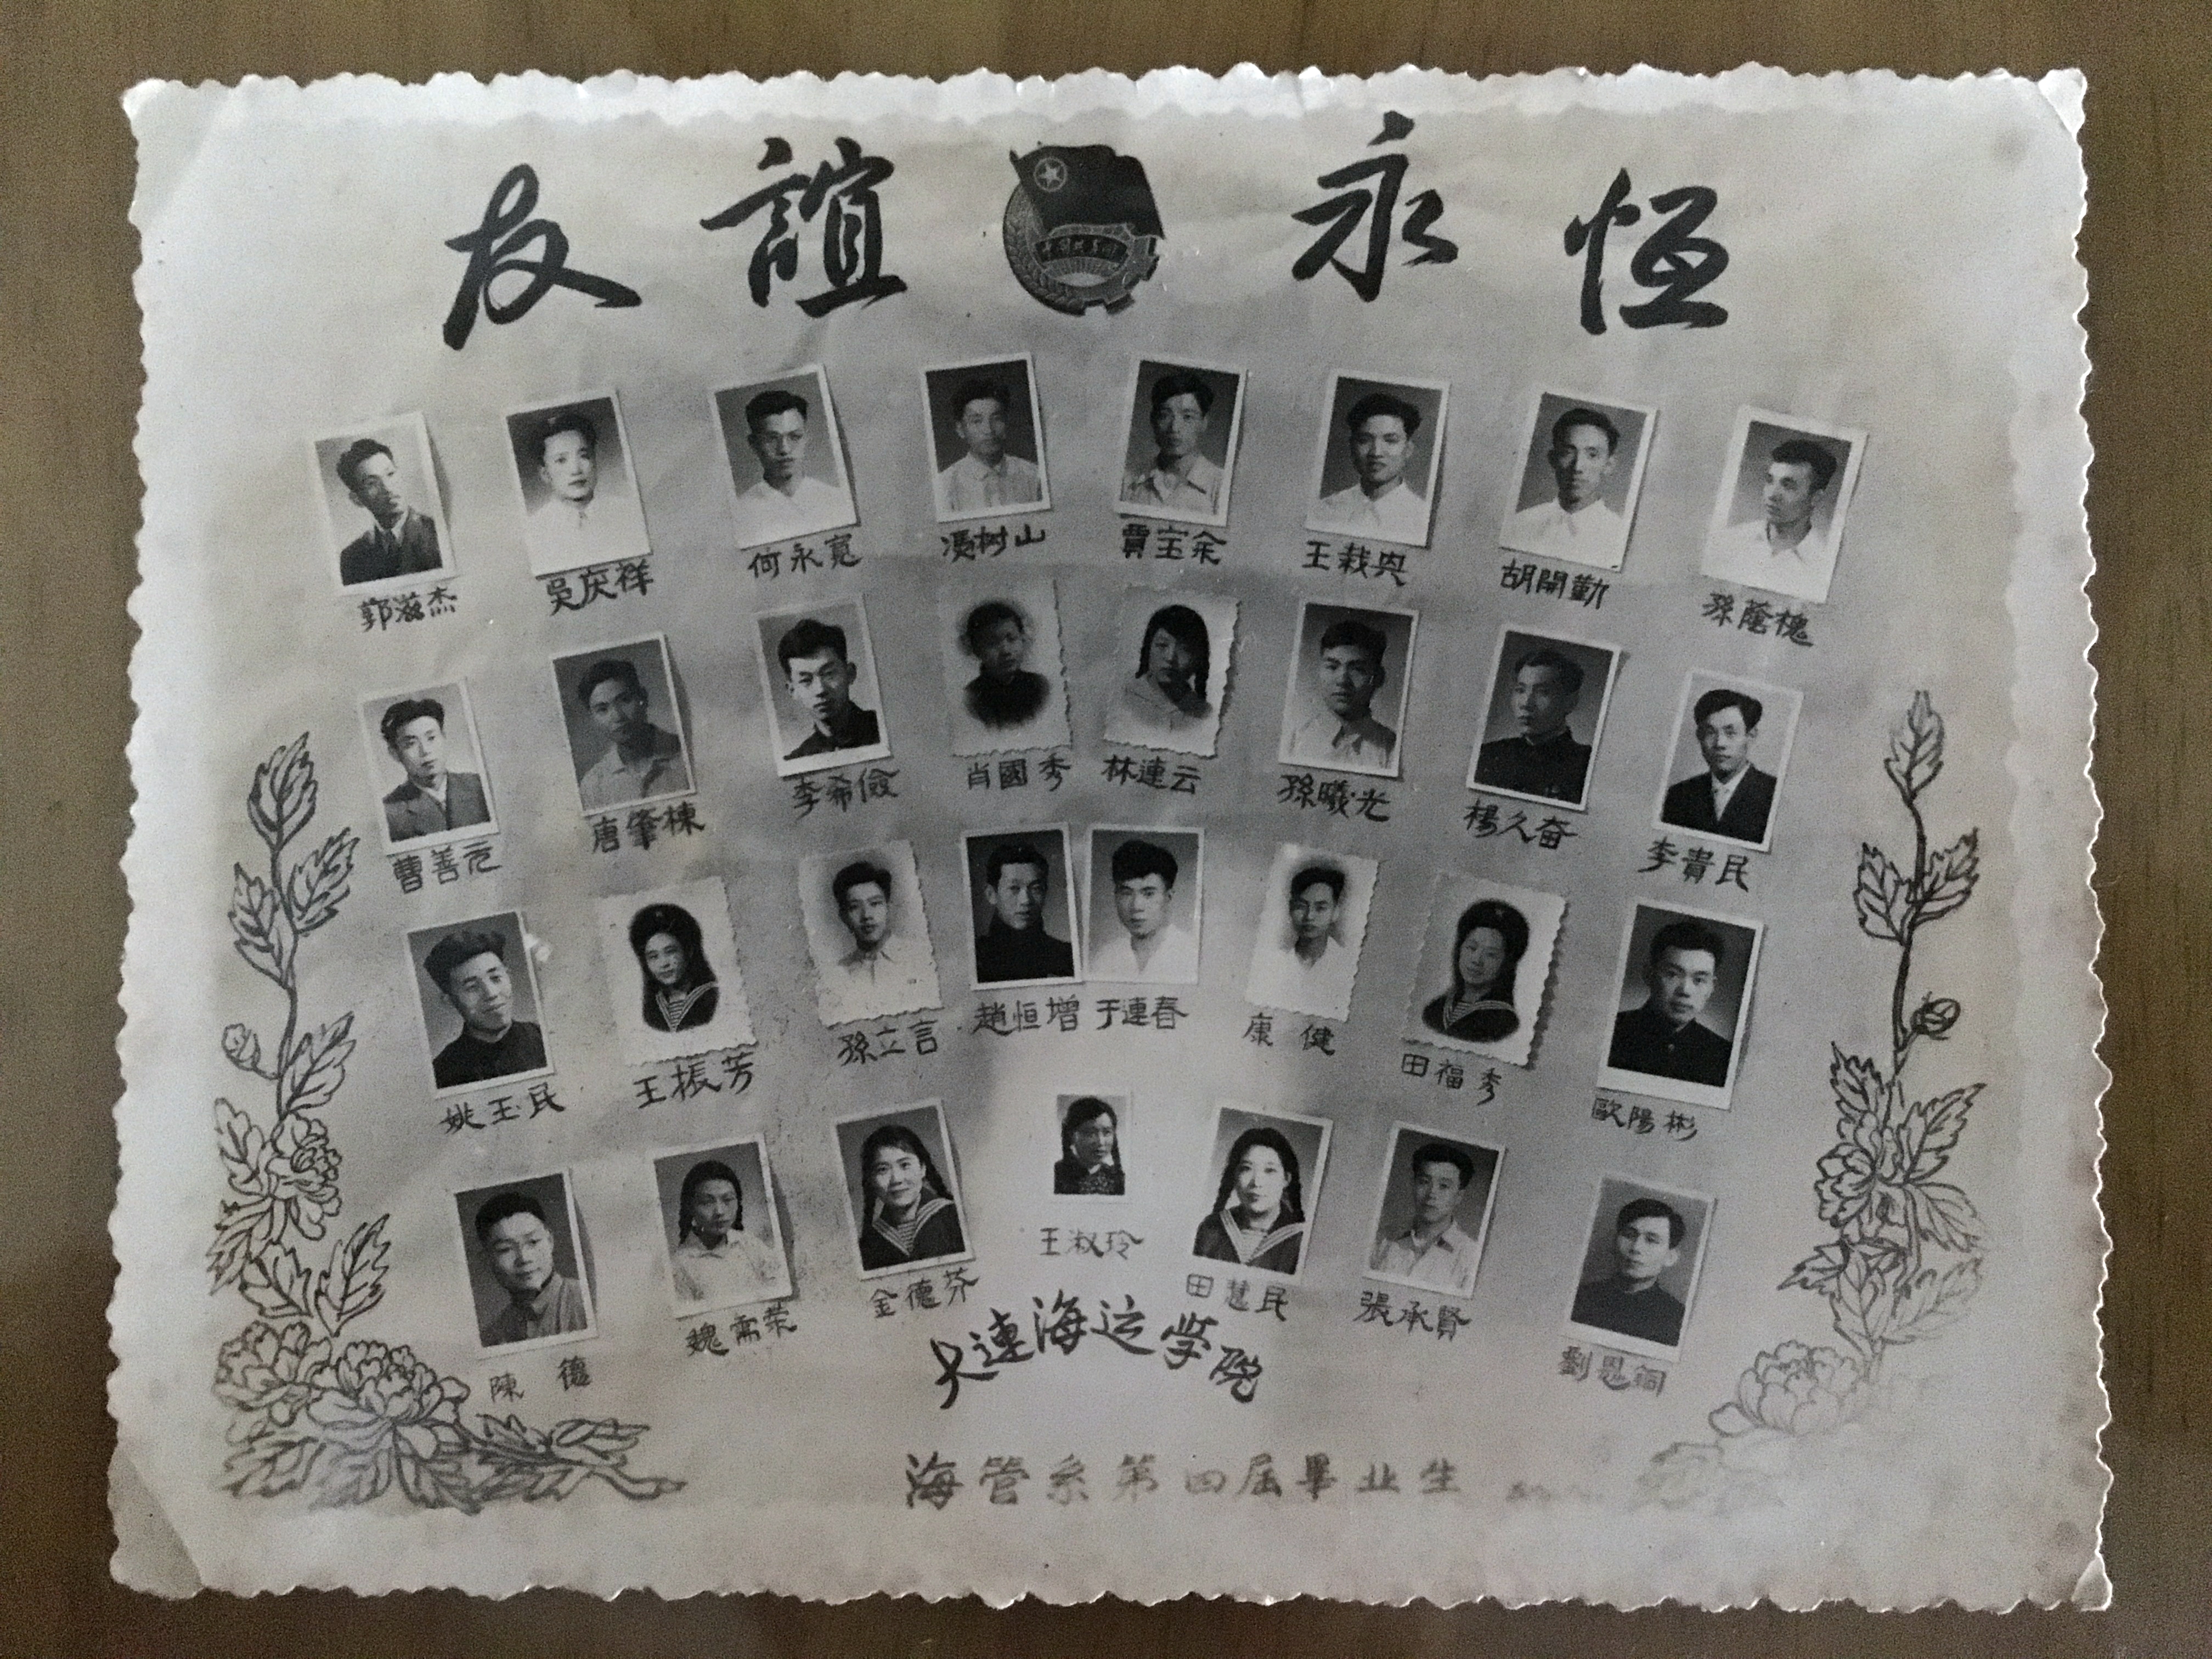 友誼永恒
郭滋杰 吳庆祥 何永寬 馮树山 賈宝余 王栽興 胡開勤 孫蔭槐
曹善元 唐肇棟 李希儉 肖國秀 林連云 孫曦光 楊久奋 李貴民
姚玉民 王振芳 孫立言 趙恒增 于連春 康健 田福秀 歐陽彬
陳德 魏需荣 金德芬 王淑玲 田慧民 張承賢 劉恩
大連海运学院
海管系第四届畢业生